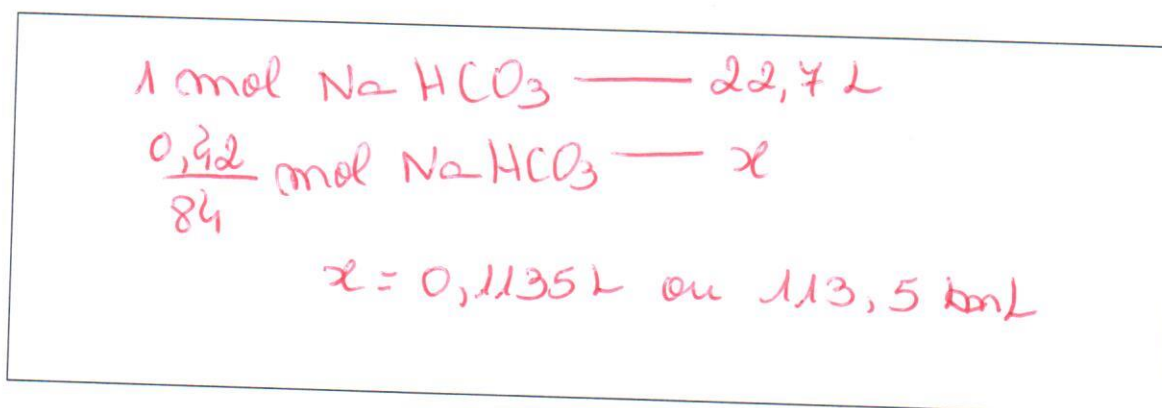 1 mol NaHCO3 — 22,7 L
0,42/84 mol NaHCO3 — x
x = 0,1135 L ou 113,5 mL